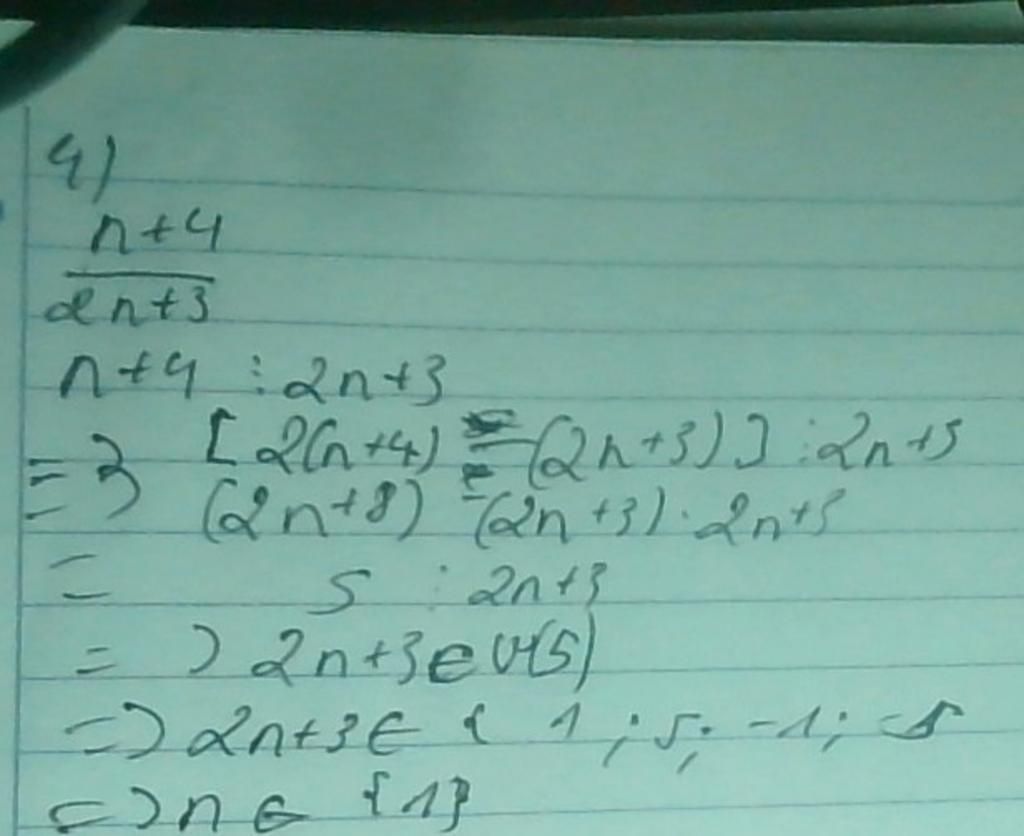 4)
n+4
2n+3
n+4 ⋮ 2n+3
=> [2(n+4) - (2n+3)] ⋮ 2n+3
= (2n+8) - (2n+3) ⋮ 2n+3
= 5 ⋮ 2n+3
=> 2n+3 ∈ Ư(5)
=> 2n+3 ∈ { 1 ; 5; -1; -5
=> n ∈ {1}